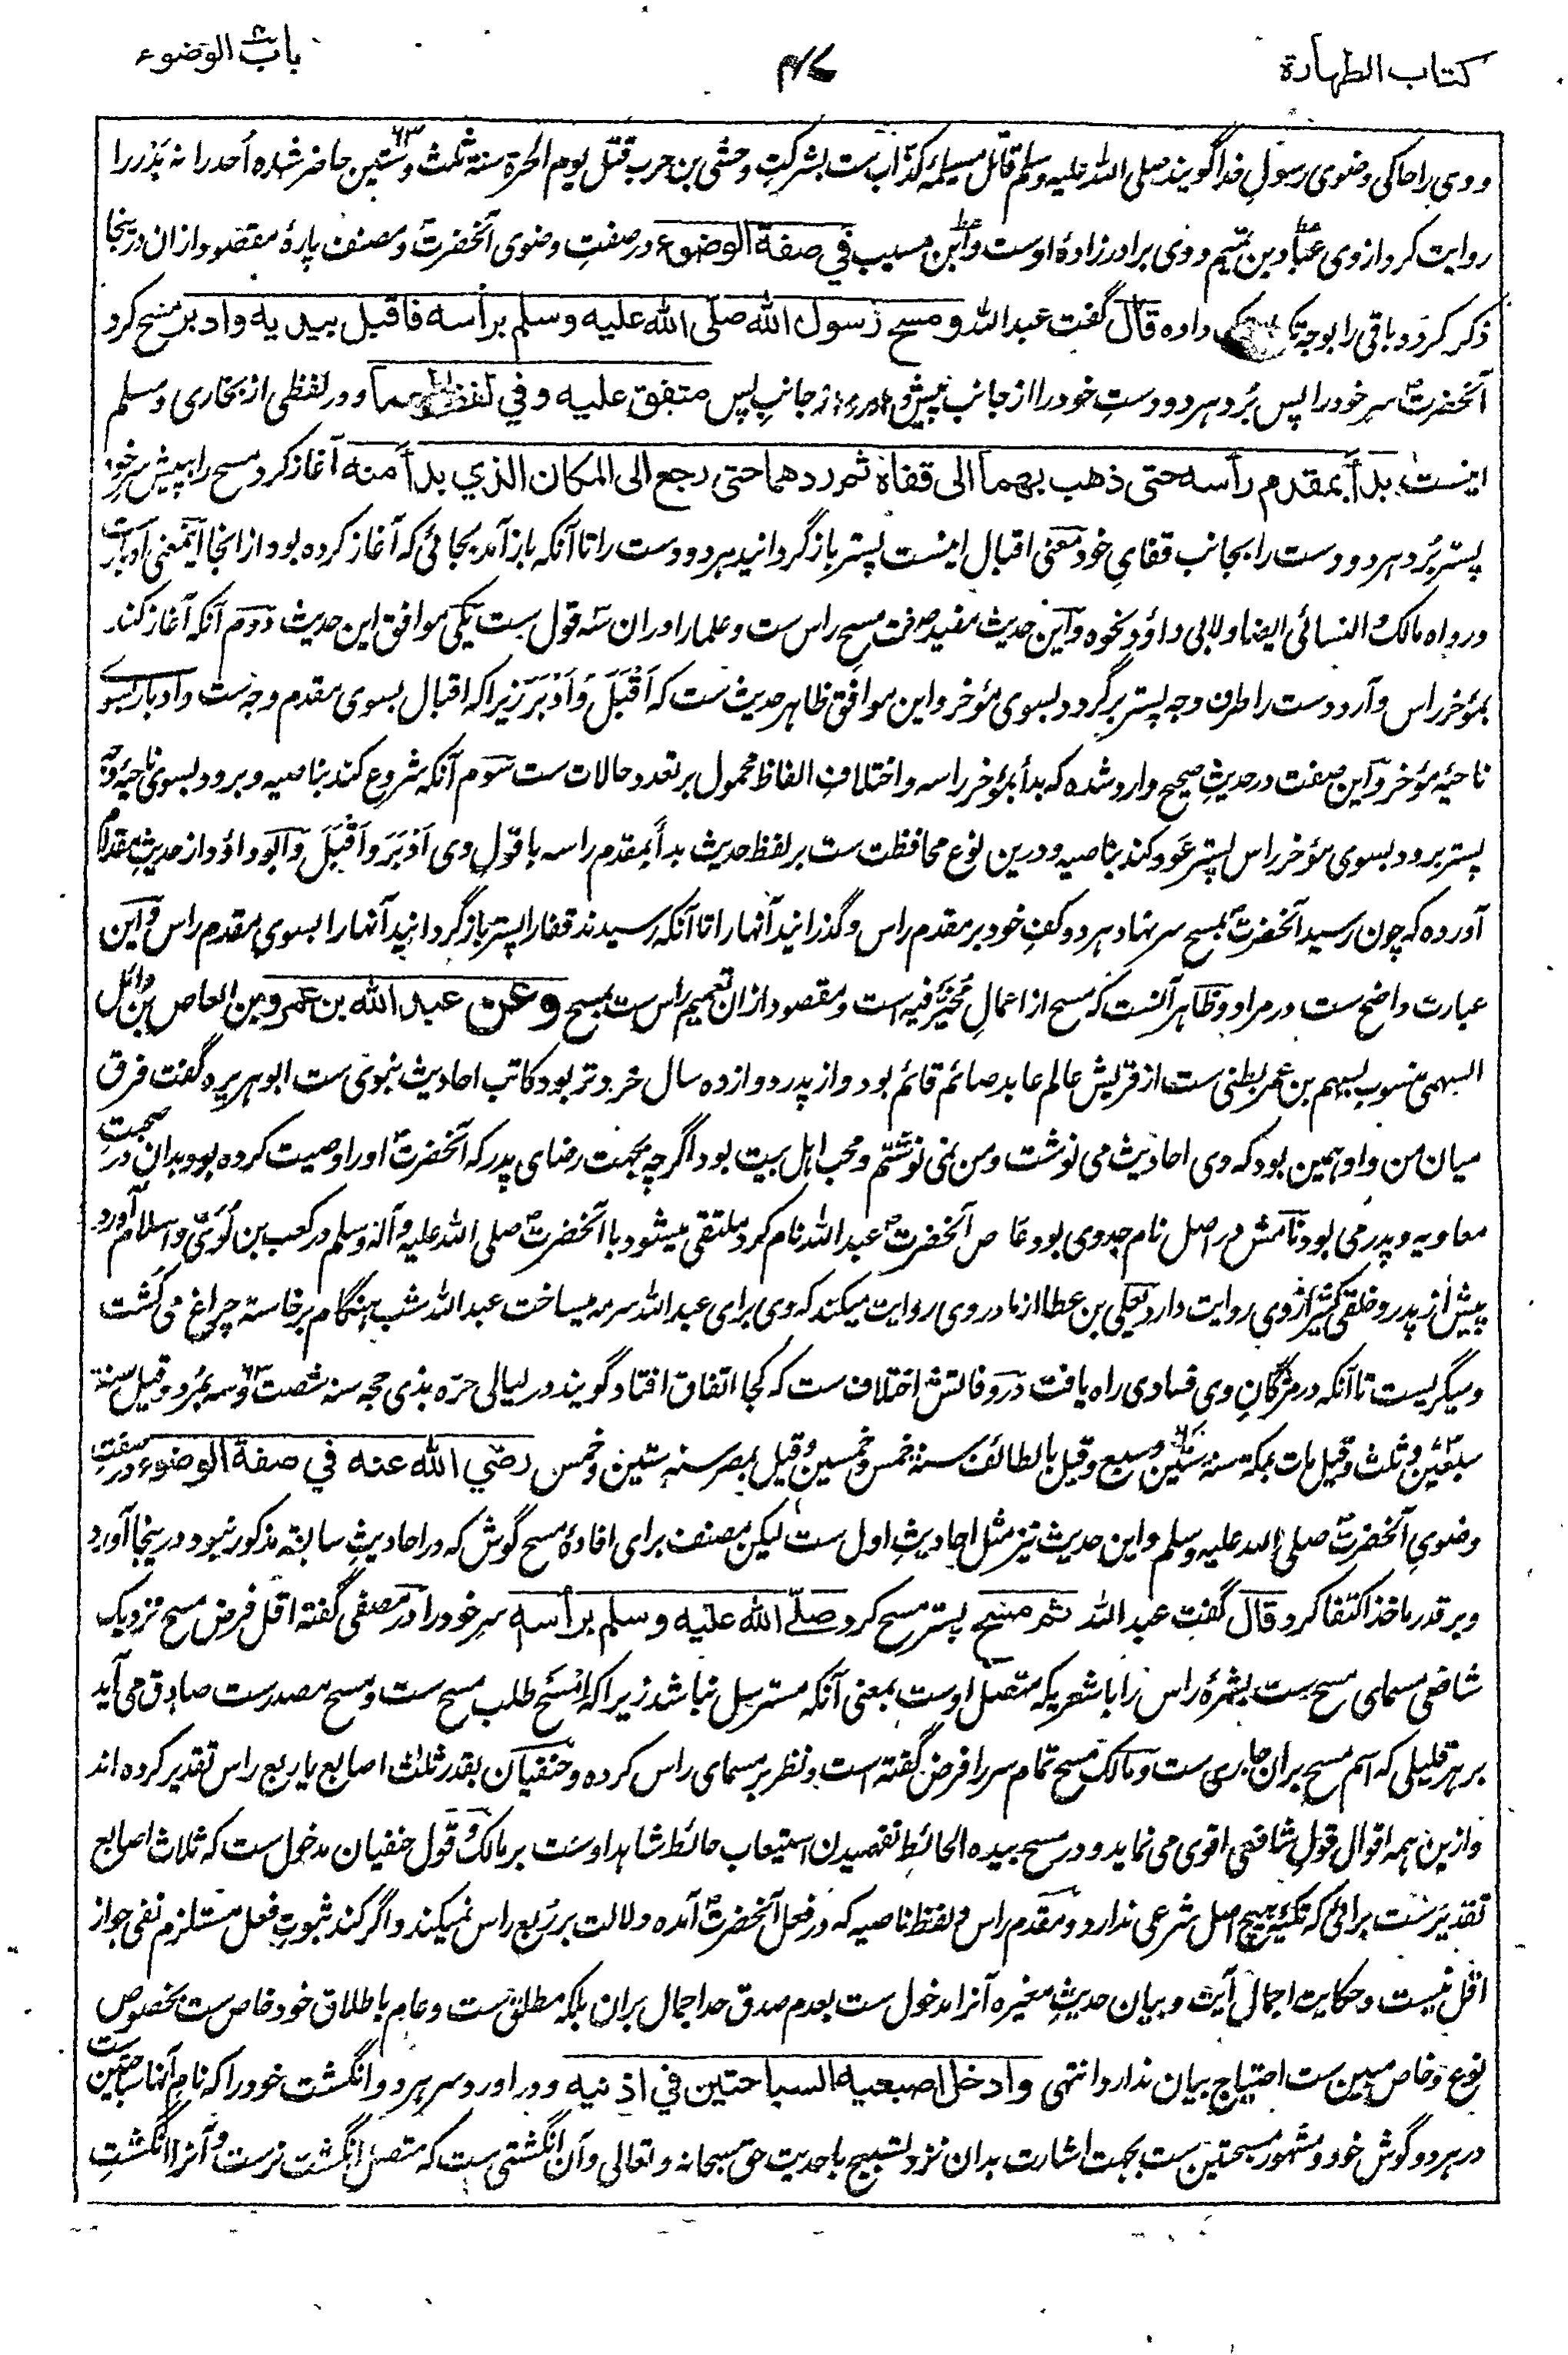 کتاب الطهارة
باب الوضوء
و وی را حاکی وضوی رسول خدا گویند صلی الله علیه وسلم قاتل مسیلمه کذاب ست بشرکت وحشی بن حرب قتل یوم الحرة سنة ثلث و ستین حاضر شده أحد را نه بدر را
روایت کرد از وی عباد بن تمیم و وی برادرزادهٔ اوست و ابن مسیب في صفة الوضوء در صفت وضوی آنحضرت و مصنف پارهٔ مقصود ازان درینجا
ذکر کرد و باقی را بوجه داده قال گفت عبد الله و مسح رسول الله صلى الله عليه وسلم برأسه فاقبل بيديه وادبر مسح کرد
آنحضرت سر خود را پس بُرد هر دو دست خود را از جانب پیش و از جانب پس متفق عليه وفي لفظ و در لفظی از بخاری و مسلم
اینست بدأ بمقدم رأسه حتى ذهب بهما الى قفاه ثم ردهما حتى رجع الى المكان الذي بدأ منه آغاز کرد مسح را به پیش سر خود
پستر بُرد هر دو دست را بجانب قفای خود معنی اقبال اینست پستر باز گردانید هر دو دست را تا آنکه باز آمد بجائی که آغاز کرده بود از انجا اینمعنی ادبارست
و رواه مالک و النسائی ایضا ولابی داؤد نحوه و این حدیث مفید صفت مسح راس ست و علما را دران سه قول ست یکی موافق این حدیث دوم آنکه آغاز کند
بمؤخر راس و آرد دست را طرف وجه پستر برگردد بسوی مؤخر و این موافق ظاهر حدیث ست که اَقْبَلَ وَاَدْبَرَ زیرا که اقبال بسوی مقدم وجه ست و ادبار بسوے
ناحیهٔ مؤخر و این صفت در حدیث صحیح وارد شده که بدأ بمؤخر راسه و اختلاف الفاظ محمول بر تعدد حالات ست سوم آنکه شروع کند بناصیه و برود بسوی ناحیهٔ وجه
پستر برود بسوی مؤخر راس پستر عود کند بناصیه و درین نوع محافظت ست بر لفظ حدیث بدأ بمقدم راسه با قول وی اَدْبَرَ وَاَقْبَلَ و ابو داؤد از حدیث مقدام
آورده که چون رسید آنحضرت بمسح سر نهاد هر دو کف خود بر مقدم راس و گذرانید آنها را تا آنکه رسیدند قفا را پستر باز گردانید آنها را بسوی مقدم راس و این
عبارت واضح ست در مراد و ظاهر آنست که مسح از اعمال مُخَیَّر فیه است و مقصود ازان تعمیم راس ست بمسح وعن عبد الله بن عمرو بن العاص بن وائل
السهمی منسوب بسهم بن عمر بطنی ست از قریش عالم عابد صائم قائم بود و از پدر دوازده سال خردتر بود کاتب احادیث نبوی ست ابو هریره گفت فرق
میان من و او همین بود که وی احادیث می نوشت و من نمی نوشتم و محب اهل بیت بود اگرچه بجهت رضای پدر که آنحضرت او را وصیت کرده بود بدان در صحبت
معاویه و پدر می بود نامش در اصل نام جد وی بود عاص آنحضرت عبد الله نام کرد ملتقی میشود با آنحضرت صلی الله علیه وآله وسلم در کعب بن لُؤَیّ و اسلام آورد
پیش از پدر و خلقی کثیر از وی روایت دارد یعلی بن عطا از مادر وی روایت میکند که وی برای عبد الله سرمه میساخت عبد الله شب هنگام برخاسته چراغ می کشت
و میگریست تا آنکه در مژگان وی فسادی راه یافت در وفاتش اختلاف ست که کجا اتفاق افتاد گویند در لیالی حرّه بذی حجه سنه شصت و سه بمُرد و قیل سنة
سبعین و ثلث و قیل مات بمکة سنه ستین و سبع و قیل بالطائف سنة خمس و خمسین و قیل بمصر سنه ستین و خمس رضي الله عنه في صفة الوضوء در صفت
وضوی آنحضرت صلی الله علیه وسلم و این حدیث نیز مثل احادیث اول ست لیکن مصنف برای افادهٔ مسح گوش که در احادیث سابقه مذکور نبود درینجا آورد
و بر قدر ماخذ اکتفا کرد قال گفت عبد الله ثم مسح پستر مسح کرد صلى الله عليه وسلم برأسه سر خود را در مصفی گفته اقل فرض مسح نزدیک
شافعی مسمای مسح ست بشرهٔ راس را با شعریکه متصل اوست بمعنی آنکه مسترسل نباشد زیرا که امسح طلب مسح ست و مسح مصدرست صادق می آید
بر هر قلیلی که اسم مسح بران جاری ست و مالک مسح تمام سر را فرض گفته است و نظر بر مسمای راس کرده و حنفیان بقدر ثلث اصابع یا ربع راس تقدیر کرده اند
و ازین همه اقوال قول شافعی اقوی می نماید و در مسح بیده الحائط نفهمیدن استیعاب حائط شاهد اوست بر مالک و قول حنفیان مدخول ست که ثلاث اصابع
تقدیرست برائی که تکیه بهیچ اصل شرعی ندارد و مقدم راس و لفظ ناصیه که در فعل آنحضرت آمده دلالت بر ربع راس نمیکند و اگر کند ثبوت فعل مستلزم نفی جواز
اقل نیست و حکایت اجمال آیت و بیان حدیث مغیره آنرا مدخول ست بعدم صدق حد اجمال بران بلکه مطلق ست و عام باطلاق خود خاص ست بخصوص
نوع و خاص مبین ست احتیاج بیان ندارد انتهی وادخل اصبعيه السباحتين في اذنيه و در اورد سر هر دو انگشت خود را که نام آنها سباحتین ست
در هر دو گوش خود و مشهور مسبحتین ست بجهت اشارت بدان نزد تسبیح باحدیت حق سبحانه و تعالی و آن انگشتی ست که متصل انگشت نرست و آنرا انگشت